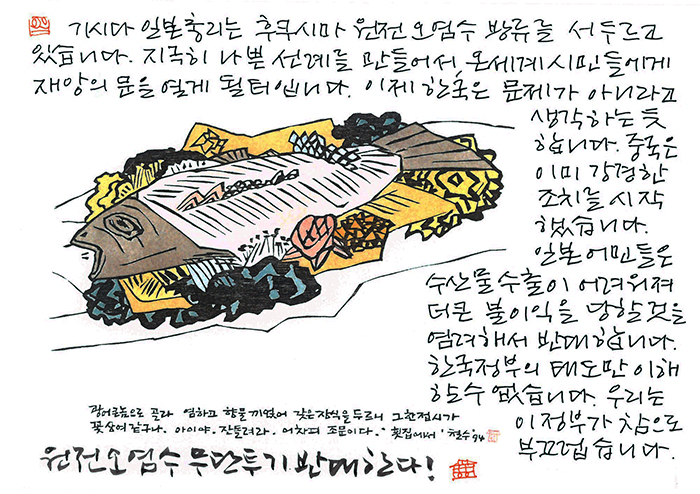 기시다 일본총리는 후쿠시마 원전 오염수 방류를 서두르고
있습니다. 지극히 나쁜 선례를 만들어서, 온세계 시민들에게
재앙의 문을 열게 될터입니다. 이제 한국은 문제가 아니라고
생각하는 듯
합니다. 중국은
이미 강경한
조치를 시작
했습니다.
일본 어민들은
수산물 수출이 어려워져
더 큰 불이익을 당할 것을
염려해서 반대합니다.
한국정부의 태도만 이해
할 수 없습니다. 우리는
이 정부가 참으로
부끄럽습니다.
광어 큰놈으로 골라 염하고 향물 끼얹어 갖은 장식을 두르니 그 한 접시가
꽃상여 같구나. 아이야. 잔 돌려라. 어차피 조문이다." 횟집에서 '철수 '94
원전오염수 무단투기 반대한다!